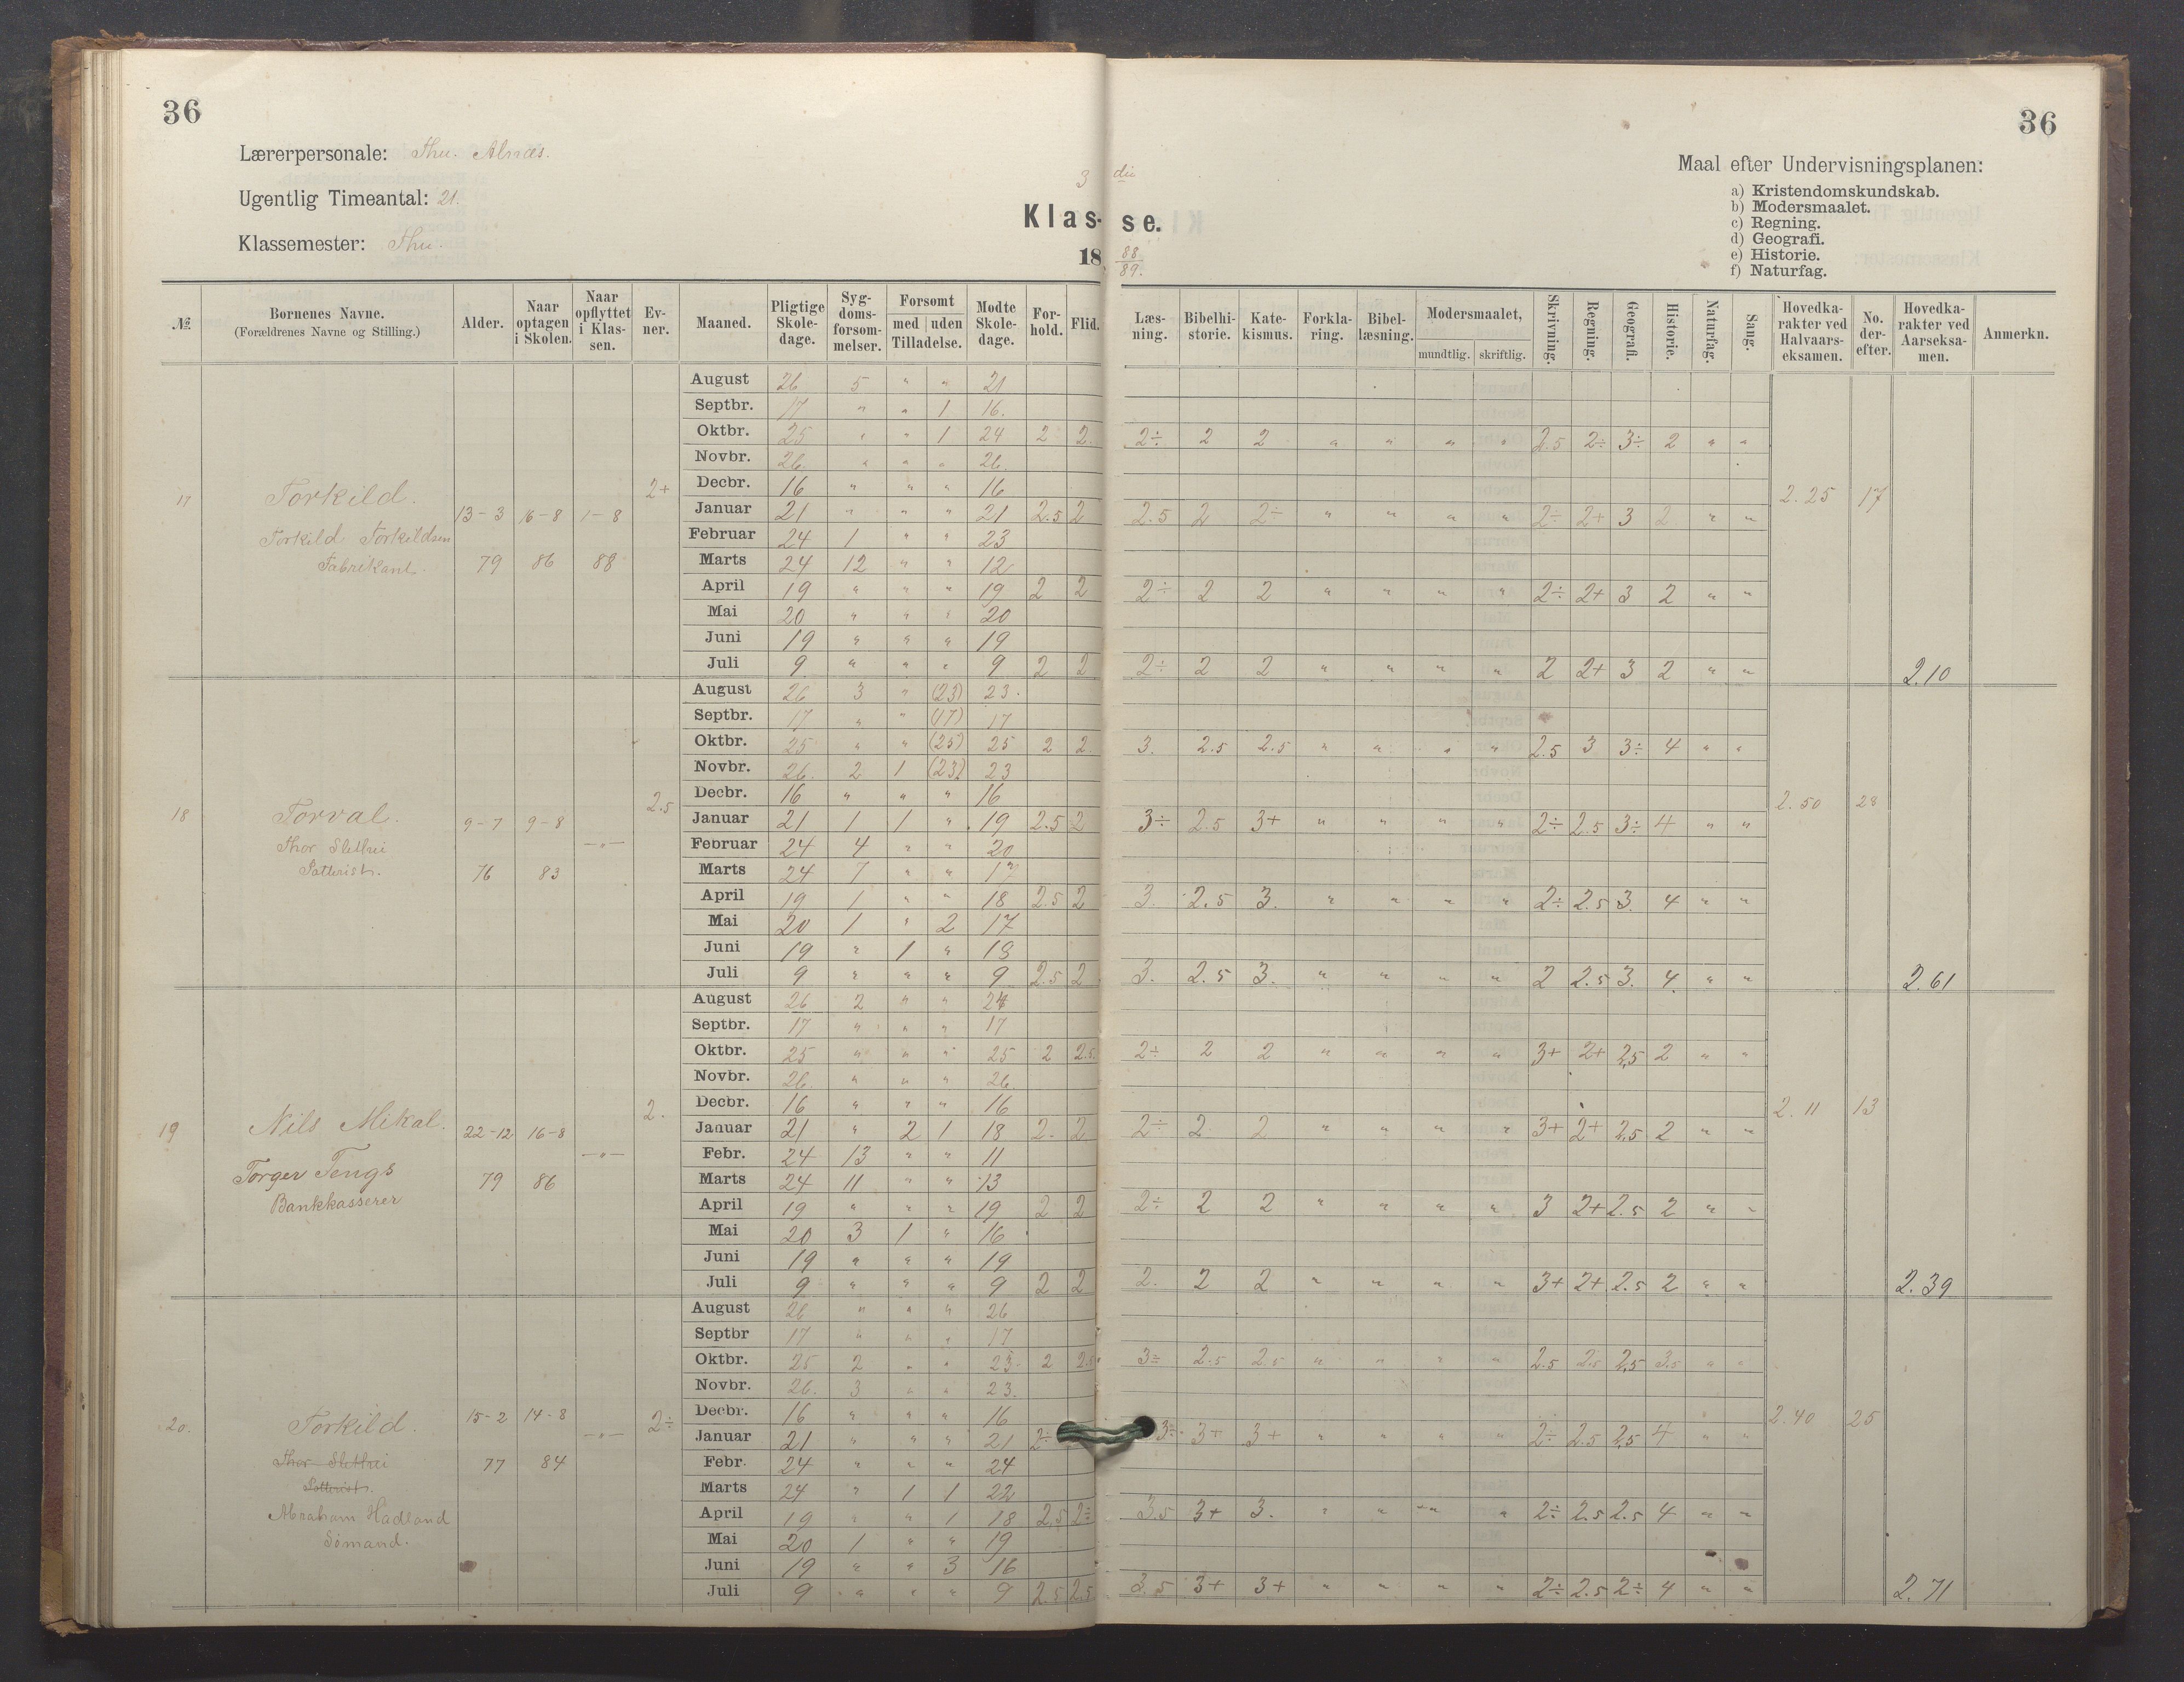 36
36
Lærerpersonale: Thu. Alnæs.
Ugentlig Timeantal: 21.
Klassemester: Thu.
3 die
Klas- se.
18 88/89.
Maal efter Undervisningsplanen:
a) Kristendomskundskab.
b) Modersmaalet.
c) Regning.
d) Geografi.
e) Historie.
f) Naturfag.
№ | Bornenes Navne. (Forældrenes Navne og Stilling.) | Alder. | Naar optagen i Skolen. | Naar opflyttet i Klas- sen. | Ev- ner. | Maaned. | Pligtige Skole- dage. | Syg- doms- forsom- melser. | Forsomt med uden Tilladelse. | Mødte Skole- dage. | For- hold. | Flid. | Læs- ning. | Bibelhi- storie. | Kate- kismus. | Forkla- ring. | Bibel- læsning. | Modersmaalet, mundtlig. skriftlig. | Skrivning. | Regning. | Geografi. | Historie. | Naturfag. | Sang. | Hovedka- rakter ved Halvaars- eksamen. | No. der- efter. | Hovedka- rakter ved Aarseksa- men. | Anmerkn.
17 Torkild. 13-3 79 16-8 86 1-8 88 2+ 2.25 17
Torkild Torkildsen
Fabrikant.
August 26 5 " " 21
Septbr. 17 " " 1 16.
Oktbr. 25 " " 1 24 2 2. 2÷ 2 2 " " " " 2.5 2÷ 3÷ 2 " "
Novbr. 26. " " " 26.
Decbr. 16 " " " 16
Januar 21 " " " 21 2.5 2 2.5 2 2÷ " " " " 2÷ 2+ 3 2 " "
Februar 24 1 " " 23
Marts 24 12 " " 12
April 19 " " " 19 2 2 2÷ 2 2 " " " " 2÷ 2+ 3 2 " "
Mai 20 " " " 20
Juni 19 " " " 19
Juli 9 " " " 9 2 2 2÷ 2 2 " " " " 2 2+ 3 2 " " 2.10
18 Torval. 9-7 76 9-8 83 —"— 2.5 2.50 28
Thor Slethei
Potterist.
August 26 3 " (23) 23.
Septbr. 17 " " (17) 17
Oktbr. 25 " " (25) 25 2 2. 3. 2.5 2.5 " " " " 2.5 3 3÷ 4 " "
Novbr. 26. 2 1 (23) 23
Decbr. 16 " " " 16
Januar 21 1 1 " 19 2.5 2 3÷ 2.5 3+ " " " " 2÷ 2.5 3÷ 4 " "
Februar 24 4 " " 20
Marts 24 7 " " 17
April 19 1 " " 18 2.5 2 3. 2.5 3. " " " " 2÷ 2.5 3. 4 " "
Mai 20 1 " 2 17
Juni 19 " 1 " 18
Juli 9 " " " 9 2.5 2 3. 2.5 3. " " " " 2 2.5 3. 4. " " 2.61
19 Nils Mikal. 22-12 79 16-8 86 —"— 2. 2.11 13
Torger Tengs
Bankkasserer
August 26 2 " " 24
Septbr. 17 " " " 17
Oktbr. 25 " " " 25 2 2.5. 2÷ 2 2 " " " " 3+ 2+ 2,5 2 " "
Novbr. 26. " " " 26
Decbr. 16 " " " 16
Januar 21 " 2 1 18 2. 2 2÷ 2 2 " " " " 3+ 2+ 2,5 2 " "
Febr. 24 13 " " 11
Marts 24 11 " " 13
April 19 " " " 19 2 2 2÷ 2 2 " " " " 3 2+ 2.5 2 " "
Mai 20 3 1 " 16
Juni 19 " " " 19
Juli 9 " " " 9 2 2 2. 2 2 " " " " 3+ 2+ 2.5 2 " " 2.39
20. Torkild. 15-2 77 14-8 84 —"— 2÷ 2.40 25
Thor Slethei
Potterist.
Abraham Hadland
Sømand.
August 26 " " " 26
Septbr 17 " " " 17
Oktbr. 25 2 " " 23. 2 2.5 3÷ 2.5 2.5 " " " " 2.5 2.5 2,5 3.5 " "
Novbr. 26. 3 " " 23.
Decbr. 16 " " " 16
Januar 21 " " " 21 2÷ 3÷ 3+ 3+ " " " " 2÷ 2.5 2,5 4 " "
Febr. 24 " " " 24
Marts 24 " 1 1 22
April 19 " " 1 18 2,5 2÷ 3.5 3+ 3. " " " " 2÷ 2.5 2.5 4 " "
Mai 20 1 " " 19
Juni 19 " " 3 16
Juli 9 " " " 9 2.5 2.5. 3.5 3+ 3+ " " " " 2÷ 2.5 2÷ 4 " " 2.71